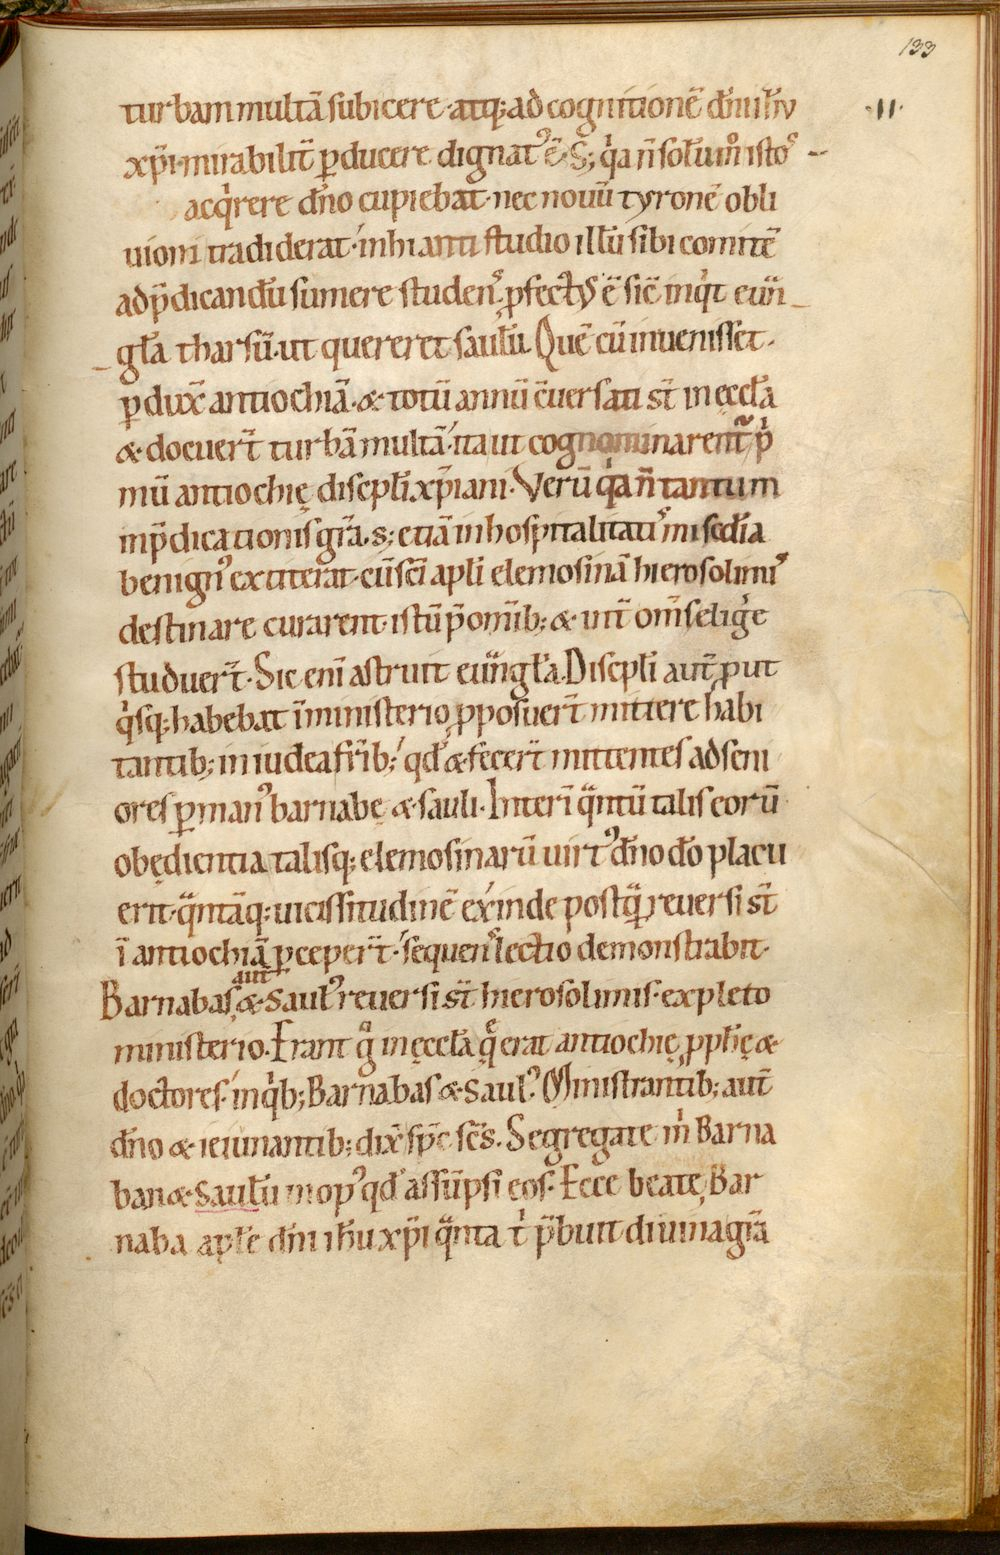 133
turbam multā subicere · atq; ad cognitionē dn̄i ih̄u ·II·
xp̄i mirabilit̄ ꝑducere dignatꝰ ē. S; qͥa n̄ solū mͦ istoꝰ
acqͥrere dn̄o cupiebat · nec nouū tyronē obli
uioni tradiderat · inhianti studio illū sibi comitē
ad p̄dicandū sumere studenꝰ ꝓfectꝰ ē sic̄ inqͥt euū
gl̄a tharsū · ut quereret saulū. Quē cū inuenisset ·
ꝑdux̄ antiochiā · & totū annū c̄uersati st̄ in eccl̄a
& docuer̄t turbā multā · ita ut cognominarent̄ pͥ
mū antiochię discpl̄i xp̄iani. Verū qͥa n̄ tantum
in p̄dicationis gr̄a. s; etiā in hospitalitatiꝰ misc̄dia
benignꝰ extiterat · cū sc̄i apl̄i elemosinā hierosolimiꝰ
destinare curarent · istū p̄ omīb; & int̄ om̄s eligͥe
studuer̄t · Sic eni astruit euūgl̄a. Discpl̄i aut̄ ꝓut
qͥsq; habebat ī ministerio ꝓposuer̄t mittere habi
tantib; in iudea fr̄ib; qd̄ & fecer̄t mittentes ad seni
ores ꝑ manꝰ barnabę & sauli · Interī qᷓntū talis eorū
obędientia talisq; elemosinarū uirtꝰ dn̄o dō placu
erit · qᷓntāq; uicissitudinē exinde postqᷓ reuersi st̄
ī antiochiā ꝑceper̄t · sequenꝰ lectio demonstrabit ·
aut̄
Barnabas & saulꝰ reuersi st̄ hierosolimis · expleto
ministerio. Erant gͦ in ęccl̄a qͤ erat antiochię ꝓph̄ę &
doctores · in qͥb; Barnabas & saulꝰ. Ministrantib; aut̄
dn̄o & ieiunantib; dix̄ sp̄c sc̄s. Segregate mͥ Barna
ban & saulū in opꝰ qd̄ assūpsi eos. Ecce beatę Bar
naba apl̄e dn̄i ih̄u xp̄i qᷓnta tͥ p̄buit diuina gr̄a